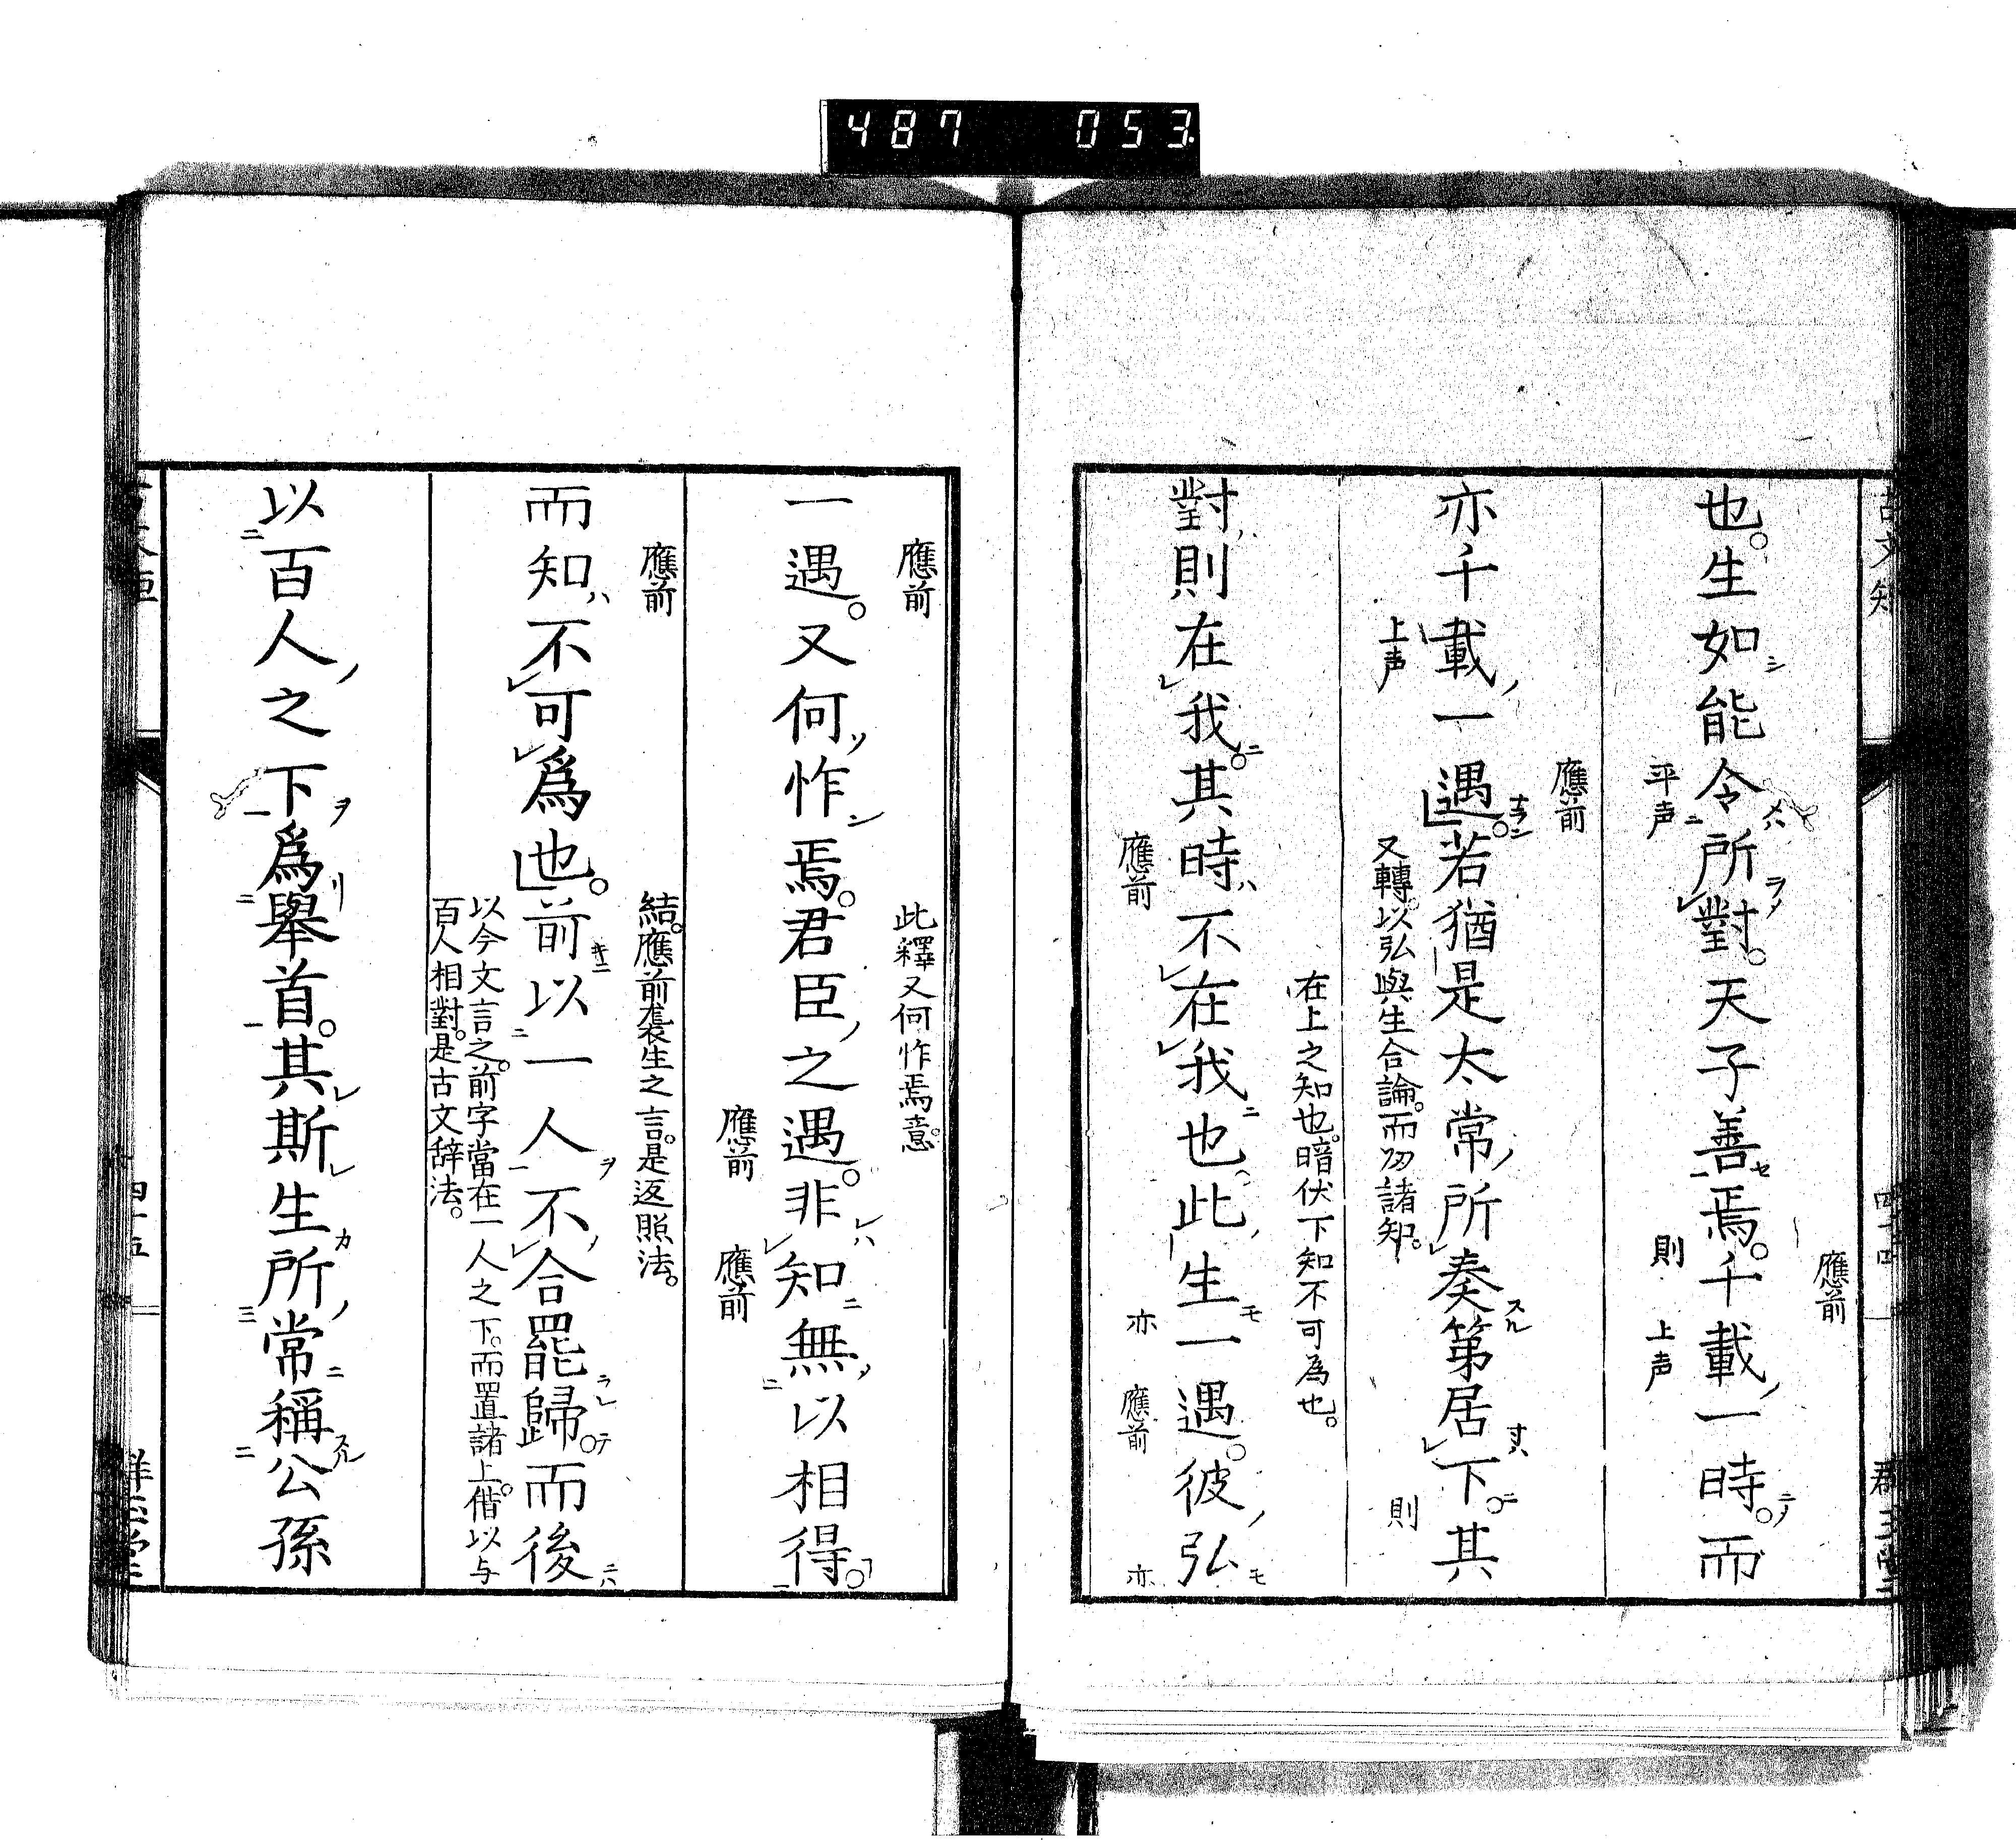 487 053
也。生如能令所對。天子善焉。千載一時而
應前
平声
則 上声
亦千載一遇。若猶是太常所奏第居下。其
應前
上声
又轉。以弘與生合論。而叨諸知。
則
對則在我。其時不在我也此生一遇。彼弘
在上之知也。暗伏下知不可為也。
應前
亦 應前 亦
一遇。又何怍焉。君臣之遇。非知無以相得。
應前
此釋又何怍焉意。
應前 應前
而知不可爲也。前以一人不合罷歸。而後
應前
結。應前袭生之言。是返照法。
以今文言之。前字當在一人之下。而置諸上。偕以与
百人相對。是古文辞法。
以百人之下爲擧首。其斯生所常稱公孫